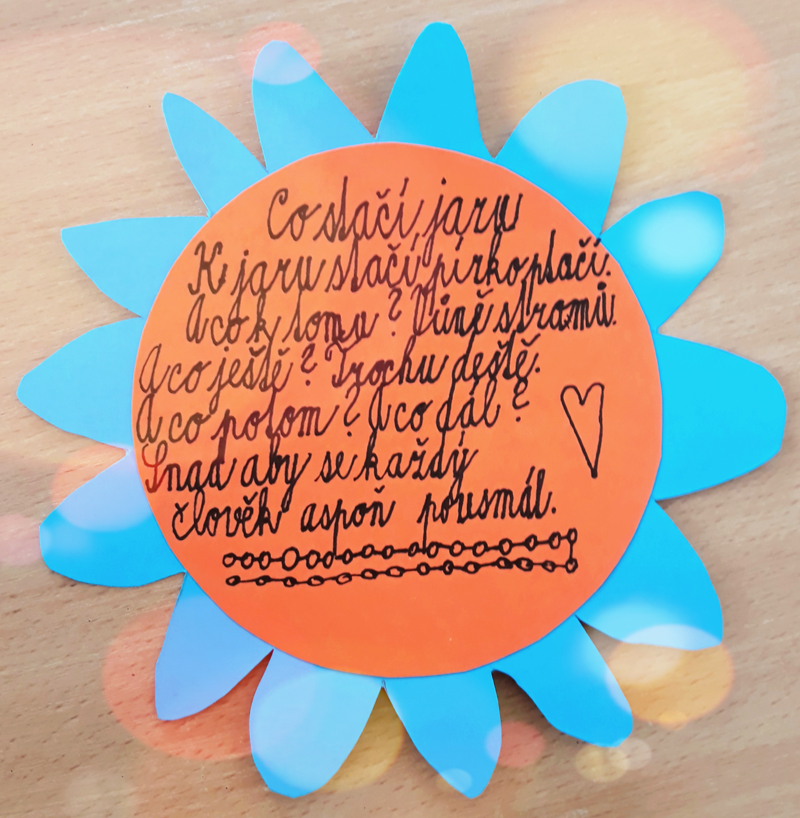 Co stačí jaru
K jaru stačí pírko ptačí.
A co k tomu? Vůně stromů.
A co ještě? Trochu deště.
A co potom? A co dál?
Snad aby se každý
člověk aspoň pousmál.